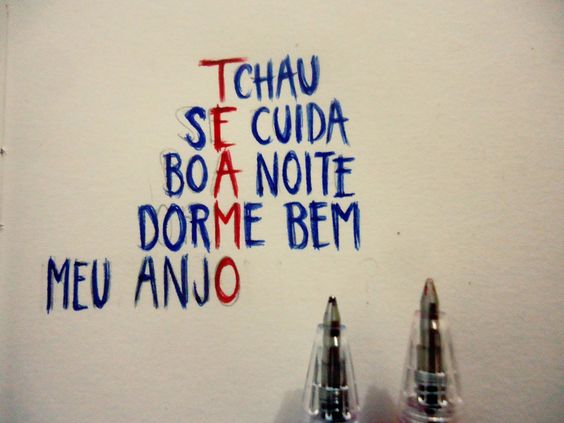 TCHAU
SE CUIDA
BOA NOITE
DORME BEM
MEU ANJO